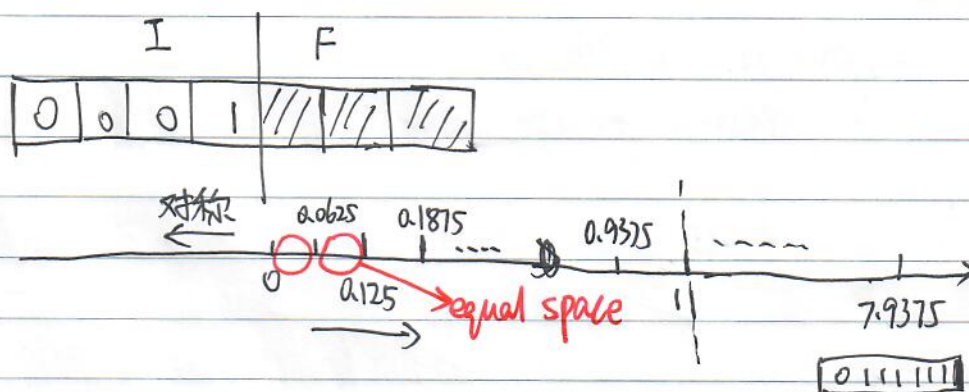 I F
0 0 0 1
对称 0.0625 0.1875 .... 0.9375 -----
0 0.125 equal space 1 7.9375
0 1 1 1 1 1 1 1